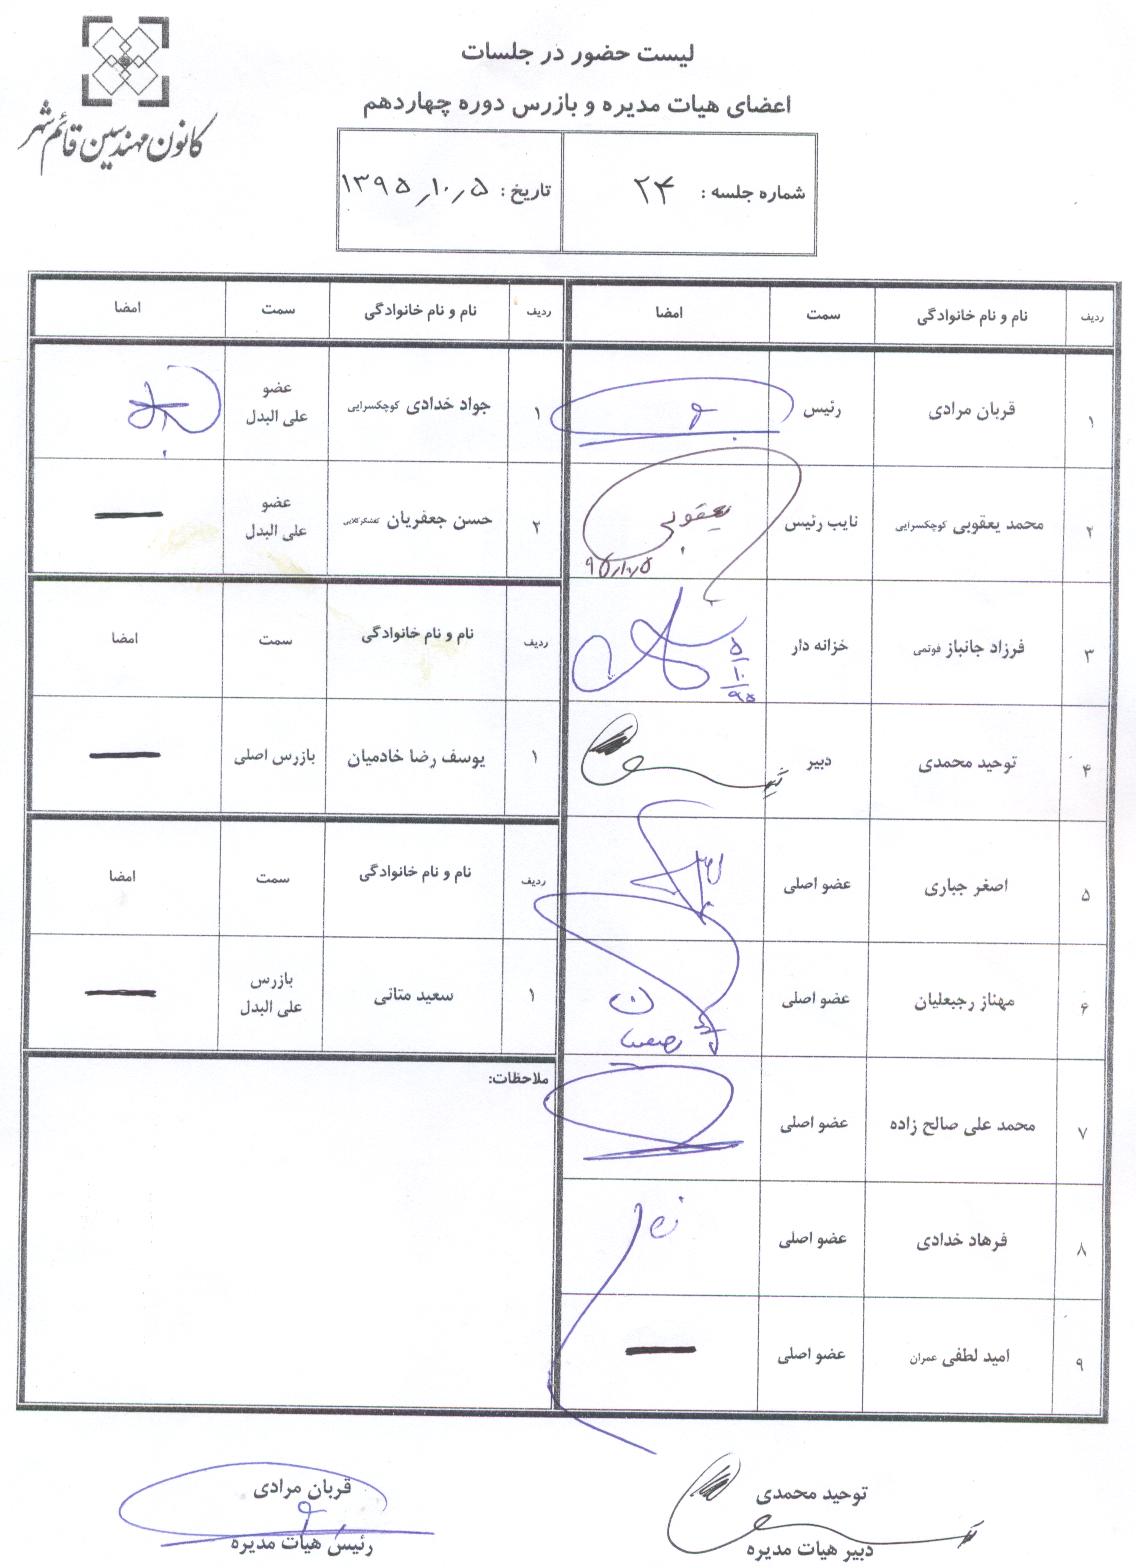 کانون مهندسین قائم شهر
لیست حضور در جلسات
اعضای هیات مدیره و بازرس دوره چهاردهم
شماره جلسه : ۲۴
تاریخ : ۱۳۹۵٫۱۰٫۵
ردیف نام و نام خانوادگی سمت امضا
۱ قربان مرادی رئیس
۲ محمد یعقوبی کوچکسرایی نایب رئیس یعقوبی
۹۵٫۱۰٫۵
۳ فرزاد جانباز فوتمی خزانه دار
۵/۱۰/۹۵
۴ توحید محمدی دبیر
۵ اصغر جباری عضو اصلی
۶ مهناز رجبعلیان عضو اصلی
۷ محمد علی صالح زاده عضو اصلی
۸ فرهاد خدادی عضو اصلی
۹ امید لطفی عمران عضو اصلی
ردیف نام و نام خانوادگی سمت امضا
۱ جواد خدادی کوچکسرایی عضو
علی البدل
۲ حسن جعفریان کفشگرکلایی عضو
علی البدل
ردیف نام و نام خانوادگی سمت امضا
۱ یوسف رضا خادمیان بازرس اصلی
ردیف نام و نام خانوادگی سمت امضا
۱ سعید متانی بازرس
علی البدل
ملاحظات:
توحید محمدی
دبیر هیات مدیره
قربان مرادی
رئیس هیات مدیره